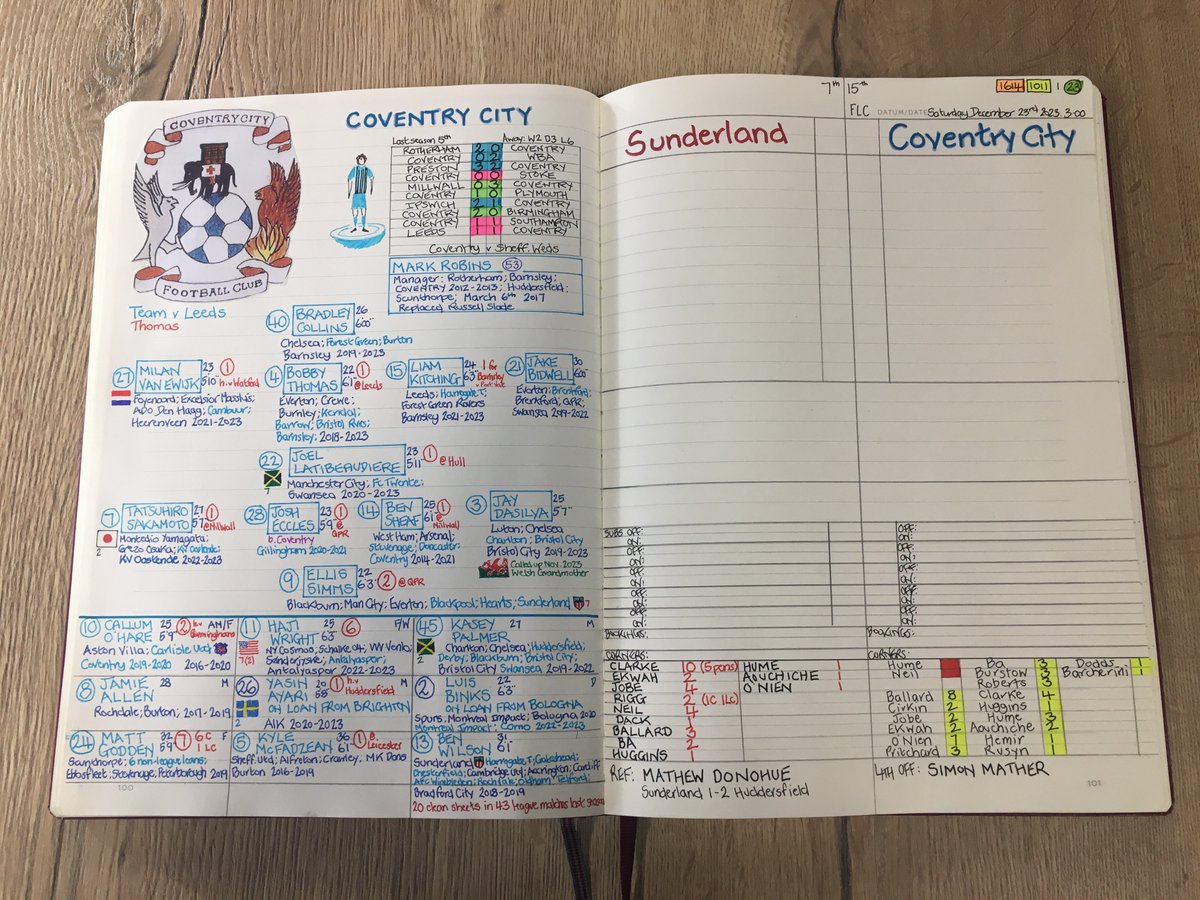 COVENTRY CITY
FOOTBALL CLUB
COVENTRY CITY
Last season 5th Away: W2 D3 L6
ROTHERHAM 2 0 COVENTRY
COVENTRY 0 2 WBA
PRESTON 3 2 COVENTRY
COVENTRY 0 0 STOKE
MILLWALL 0 3 COVENTRY
COVENTRY 1 0 PLYMOUTH
IPSWICH 2 1 COVENTRY
COVENTRY 2 0 BIRMINGHAM
COVENTRY 1 1 SOUTHAMPTON
LEEDS 1 1 COVENTRY
Coventry v Sheff. Weds
MARK ROBINS 53
Manager: Rotherham; Barnsley;
COVENTRY 2012-2013; Huddersfield;
Scunthorpe; March 6th 2017
Replaced Russell Slade
Team v Leeds
Thomas
40 BRADLEY COLLINS 26 6'00"
Chelsea; Forest Green; Burton
Barnsley 2019-2023
27 MILAN VAN EWIJK 23 5'10" 1 h.v Watford
Feyenoord; Excelsior Massluis;
Ado Den Haag; Cambuur;
Heerenveen 2021-2023
4 BOBBY THOMAS 22 6'1" 1 @Leeds
Everton; Crewe;
Burnley; Kendal;
Barrow; Bristol Rvrs;
Barnsley; 2018-2023
15 LIAM KITCHING 24 6'3" 1 for Barnsley v Port Vale
Leeds; Harrogate T;
Forest Green Rovers
Barnsley 2021-2023
21 JAKE BIDWELL 30 6'00"
Everton; Brentford;
Brentford; QPR;
Swansea 2019-2022
22 JOEL LATIBEAUDIERE 23 5'11" 1 @Hull
7
Manchester City; Fc Twente;
Swansea 2020-2023
7 TATSUHIRO SAKAMOTO 27 5'7" 1 @Millwall
2
Montedio Yamagata;
Cerezo Osaka; KV Oostende;
KV Oostende 2022-2023
28 JOSH ECCLES 23 5'9" 1 @ QPR
b. Coventry
Gillingham 2020-2021
14 BEN SHEAF 25 6'1" 1 @ Millwall
West Ham; Arsenal;
Stevenage; Doncaster;
Coventry 2014-2021
3 JAY DASILVA 25 5'7"
Luton; Chelsea
Charlton; Bristol City
Bristol City 2019-2023
Called up Nov. 2023
Welsh Grandmother
9 ELLIS SIMMS 22 6'3" 2 @ QPR
Blackburn; Man City; Everton; Blackpool; Hearts; Sunderland 7
10 CALLUM O'HARE 25 5'9" 2 h.v Birmingham AM/F
Aston Villa; Carlisle Utd
Coventry 2019-2020 2016-2020
11 HAJI WRIGHT 25 6'3" 6 F/W
7(2)
NY Cosmos, Schalke 04, VVV Venlo;
Sonderjyske; Antalyaspor;
Antalyaspor 2022-2023
45 KASEY PALMER 27 M
2
Charlton; Chelsea; Huddersfield;
Derby; Blackburn; Bristol City;
Bristol City Swansea 2019-2022
8 JAMIE ALLEN 28 M
Rochdale; Burton; 2017-2019
26 YASIN AYARI 20 5'8" 1 h.v Huddersfield M
ON LOAN FROM BRIGHTON
2 AIK 2020-2023
2 LUIS BINKS 22 6'3" D
ON LOAN FROM BOLOGNA
Spurs; Montreal Impact; Bologna 2020
Montreal Impact; Como 2022-2023
24 MATT GODDEN 32 5'9" 7 6C 1LC F
Scunthorpe; 6 non-league loans;
Ebbsfleet; Stevenage; Peterborough 2019
5 KYLE McFADZEAN 36 6'1" 1 @ Leicester D
Sheff. Utd; Alfreton; Crawley; MK Dons
Burton 2016-2019
13 BEN WILSON 31 6'1" G
Sunderland Harrogate T; Gateshead;
Chesterfield; Cambridge Utd; Accrington; Cardiff
AFC Wimbledon; Rochdale; Oldham; Telford;
Bradford City 2018-2019
20 clean sheets in 43 league matches last season
100
7th 15th 1614 1011 1 23
FLC DATUM/DATE Saturday December 23rd 2023. 3.00
Sunderland Coventry City
SUBS OFF: OFF:
ON: ON:
OFF: OFF:
ON: ON:
OFF: OFF:
ON: ON:
OFF: OFF:
ON: ON:
OFF: OFF:
ON: ON:
BOOKINGS: BOOKINGS:
CORNERS: CORNERS:
CLARKE 10 (5 pens) HUME 1
EKWAH 2 AOUCHICHE 1
JOBE 4 O'NIEN 1
RIGG 2 (1C 1LC)
NEIL 4
DACK 1
BALLARD 3
BA 2
HUGGINS 1
Hume Ba 3 Dodds 1
Neil Burstow 3 Barcherini 1
Roberts 3
Ballard 8 Clarke 4
Cirkin 2 Huggins 1
Jobe 2 Hume 3
Ekwah 2 Aouchiche 2
O'Nien 1 Hemir 1
Pritchard 3 Rusyn 1
REF: MATHEW DONOHUE
Sunderland 1-2 Huddersfield
4TH OFF: SIMON MATHER
101